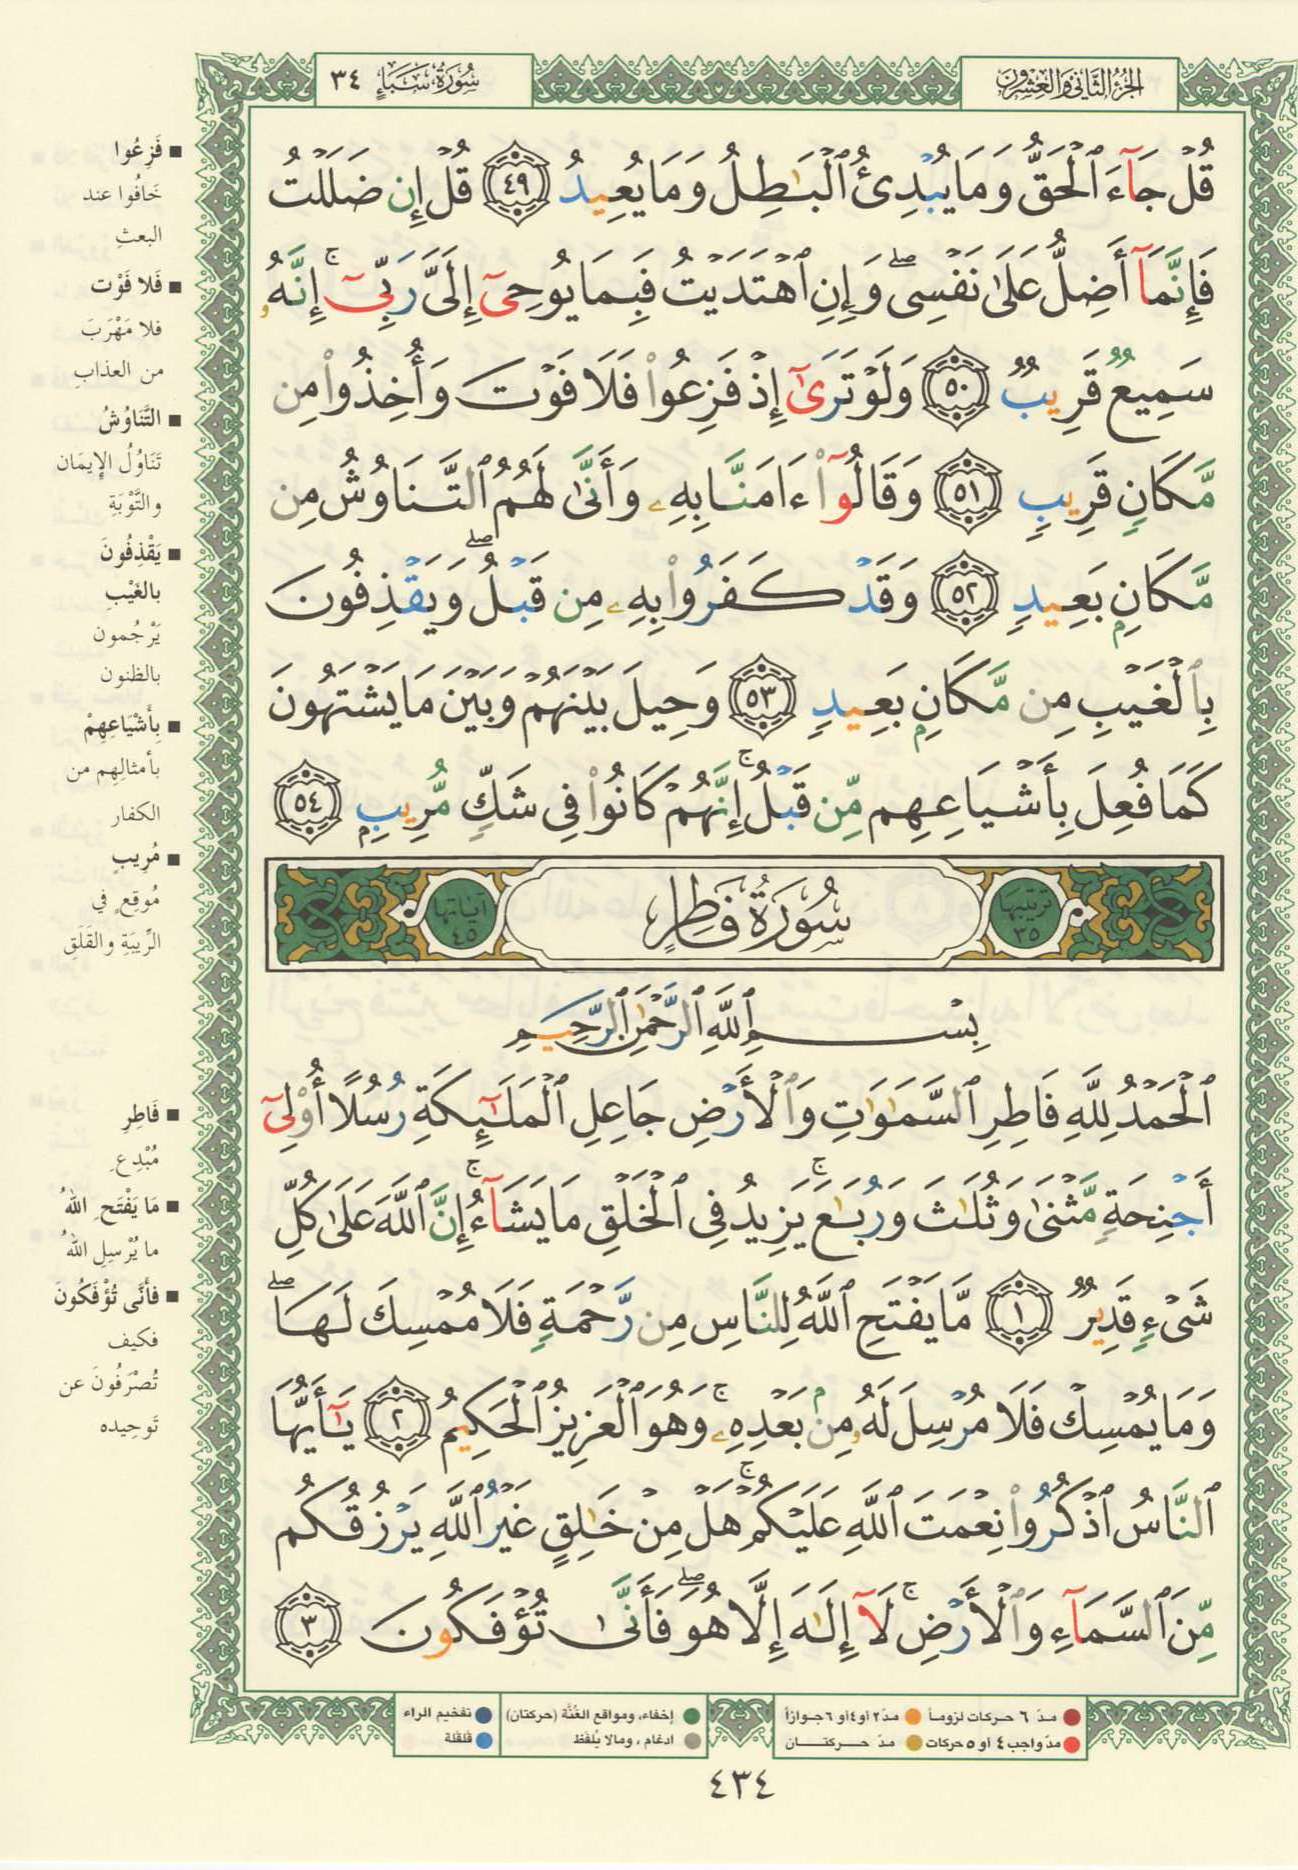 الجزء الثاني والعشرون
سورة سبإ ٣٤
قُلْ جَآءَ ٱلْحَقُّ وَمَا يُبْدِئُ ٱلْبَٰطِلُ وَمَا يُعِيدُ ٤٩ قُلْ إِن ضَلَلْتُ
فَإِنَّمَآ أَضِلُّ عَلَىٰ نَفْسِى ۖ وَإِنِ ٱهْتَدَيْتُ فَبِمَا يُوحِىٓ إِلَىَّ رَبِّىٓ ۚ إِنَّهُۥ
سَمِيعٌ قَرِيبٌ ٥٠ وَلَوْ تَرَىٰٓ إِذْ فَزِعُوا۟ فَلَا فَوْتَ وَأُخِذُوا۟ مِن
مَّكَانٍ قَرِيبٍ ٥١ وَقَالُوٓا۟ ءَامَنَّا بِهِۦ وَأَنَّىٰ لَهُمُ ٱلتَّنَاوُشُ مِن
مَّكَانٍۭ بَعِيدٍ ٥٢ وَقَدْ كَفَرُوا۟ بِهِۦ مِن قَبْلُ ۖ وَيَقْذِفُونَ
بِٱلْغَيْبِ مِن مَّكَانٍۭ بَعِيدٍ ٥٣ وَحِيلَ بَيْنَهُمْ وَبَيْنَ مَا يَشْتَهُونَ
كَمَا فُعِلَ بِأَشْيَاعِهِم مِّن قَبْلُ ۚ إِنَّهُمْ كَانُوا۟ فِى شَكٍّ مُّرِيبٍۭ ٥٤
ترتيبها ٣٥ سُورَةُ فَاطِرٍ آياتها ٤٥
بِسْمِ ٱللَّهِ ٱلرَّحْمَٰنِ ٱلرَّحِيمِ
ٱلْحَمْدُ لِلَّهِ فَاطِرِ ٱلسَّمَٰوَٰتِ وَٱلْأَرْضِ جَاعِلِ ٱلْمَلَٰٓئِكَةِ رُسُلًا أُو۟لِىٓ
أَجْنِحَةٍ مَّثْنَىٰ وَثُلَٰثَ وَرُبَٰعَ ۚ يَزِيدُ فِى ٱلْخَلْقِ مَا يَشَآءُ ۚ إِنَّ ٱللَّهَ عَلَىٰ كُلِّ
شَىْءٍ قَدِيرٌ ١ مَّا يَفْتَحِ ٱللَّهُ لِلنَّاسِ مِن رَّحْمَةٍ فَلَا مُمْسِكَ لَهَا ۖ
وَمَا يُمْسِكْ فَلَا مُرْسِلَ لَهُۥ مِنۢ بَعْدِهِۦ ۚ وَهُوَ ٱلْعَزِيزُ ٱلْحَكِيمُ ٢ يَٰٓأَيُّهَا
ٱلنَّاسُ ٱذْكُرُوا۟ نِعْمَتَ ٱللَّهِ عَلَيْكُمْ ۚ هَلْ مِنْ خَٰلِقٍ غَيْرُ ٱللَّهِ يَرْزُقُكُم
مِّنَ ٱلسَّمَآءِ وَٱلْأَرْضِ ۚ لَآ إِلَٰهَ إِلَّا هُوَ ۖ فَأَنَّىٰ تُؤْفَكُونَ ٣
■ فَزِعُوا
خَافُوا عند
البعثِ
■ فَلا فَوْت
فلا مَهْرَبَ
من العذابِ
■ التَّنَاوُشُ
تَنَاوُلُ الإِيمَان
والتَّوْبَةِ
■ يَقْذِفُونَ
بالغَيْبِ
يَرْجُمون
بالظنون
■ بِأَشْيَاعِهِمْ
بأمثالِهِم من
الكفار
■ مُرِيبٍ
مُوقِعٍ في
الرِّيبَةِ والقَلَقِ
■ فَاطِرِ
مُبْدِعِ
■ مَا يَفْتَحِ اللهُ
ما يُرْسِلِ اللهُ
■ فأنّى تُؤْفَكُونَ
فكيف
تُصْرَفُونَ عن
تَوحِيده
● مدّ ٦ حركات لزوماً ● مدّ ٢ أو ٤ أو ٦ جوازاً ● إخفاء، ومواقع الغُنَّة (حركتان) ● تفخيم الراء
● مدّ واجب ٤ أو ٥ حركات ● مدّ حركتان ● ادغام، ومالا يُلفَظ ● قلقلة
٤٣٤